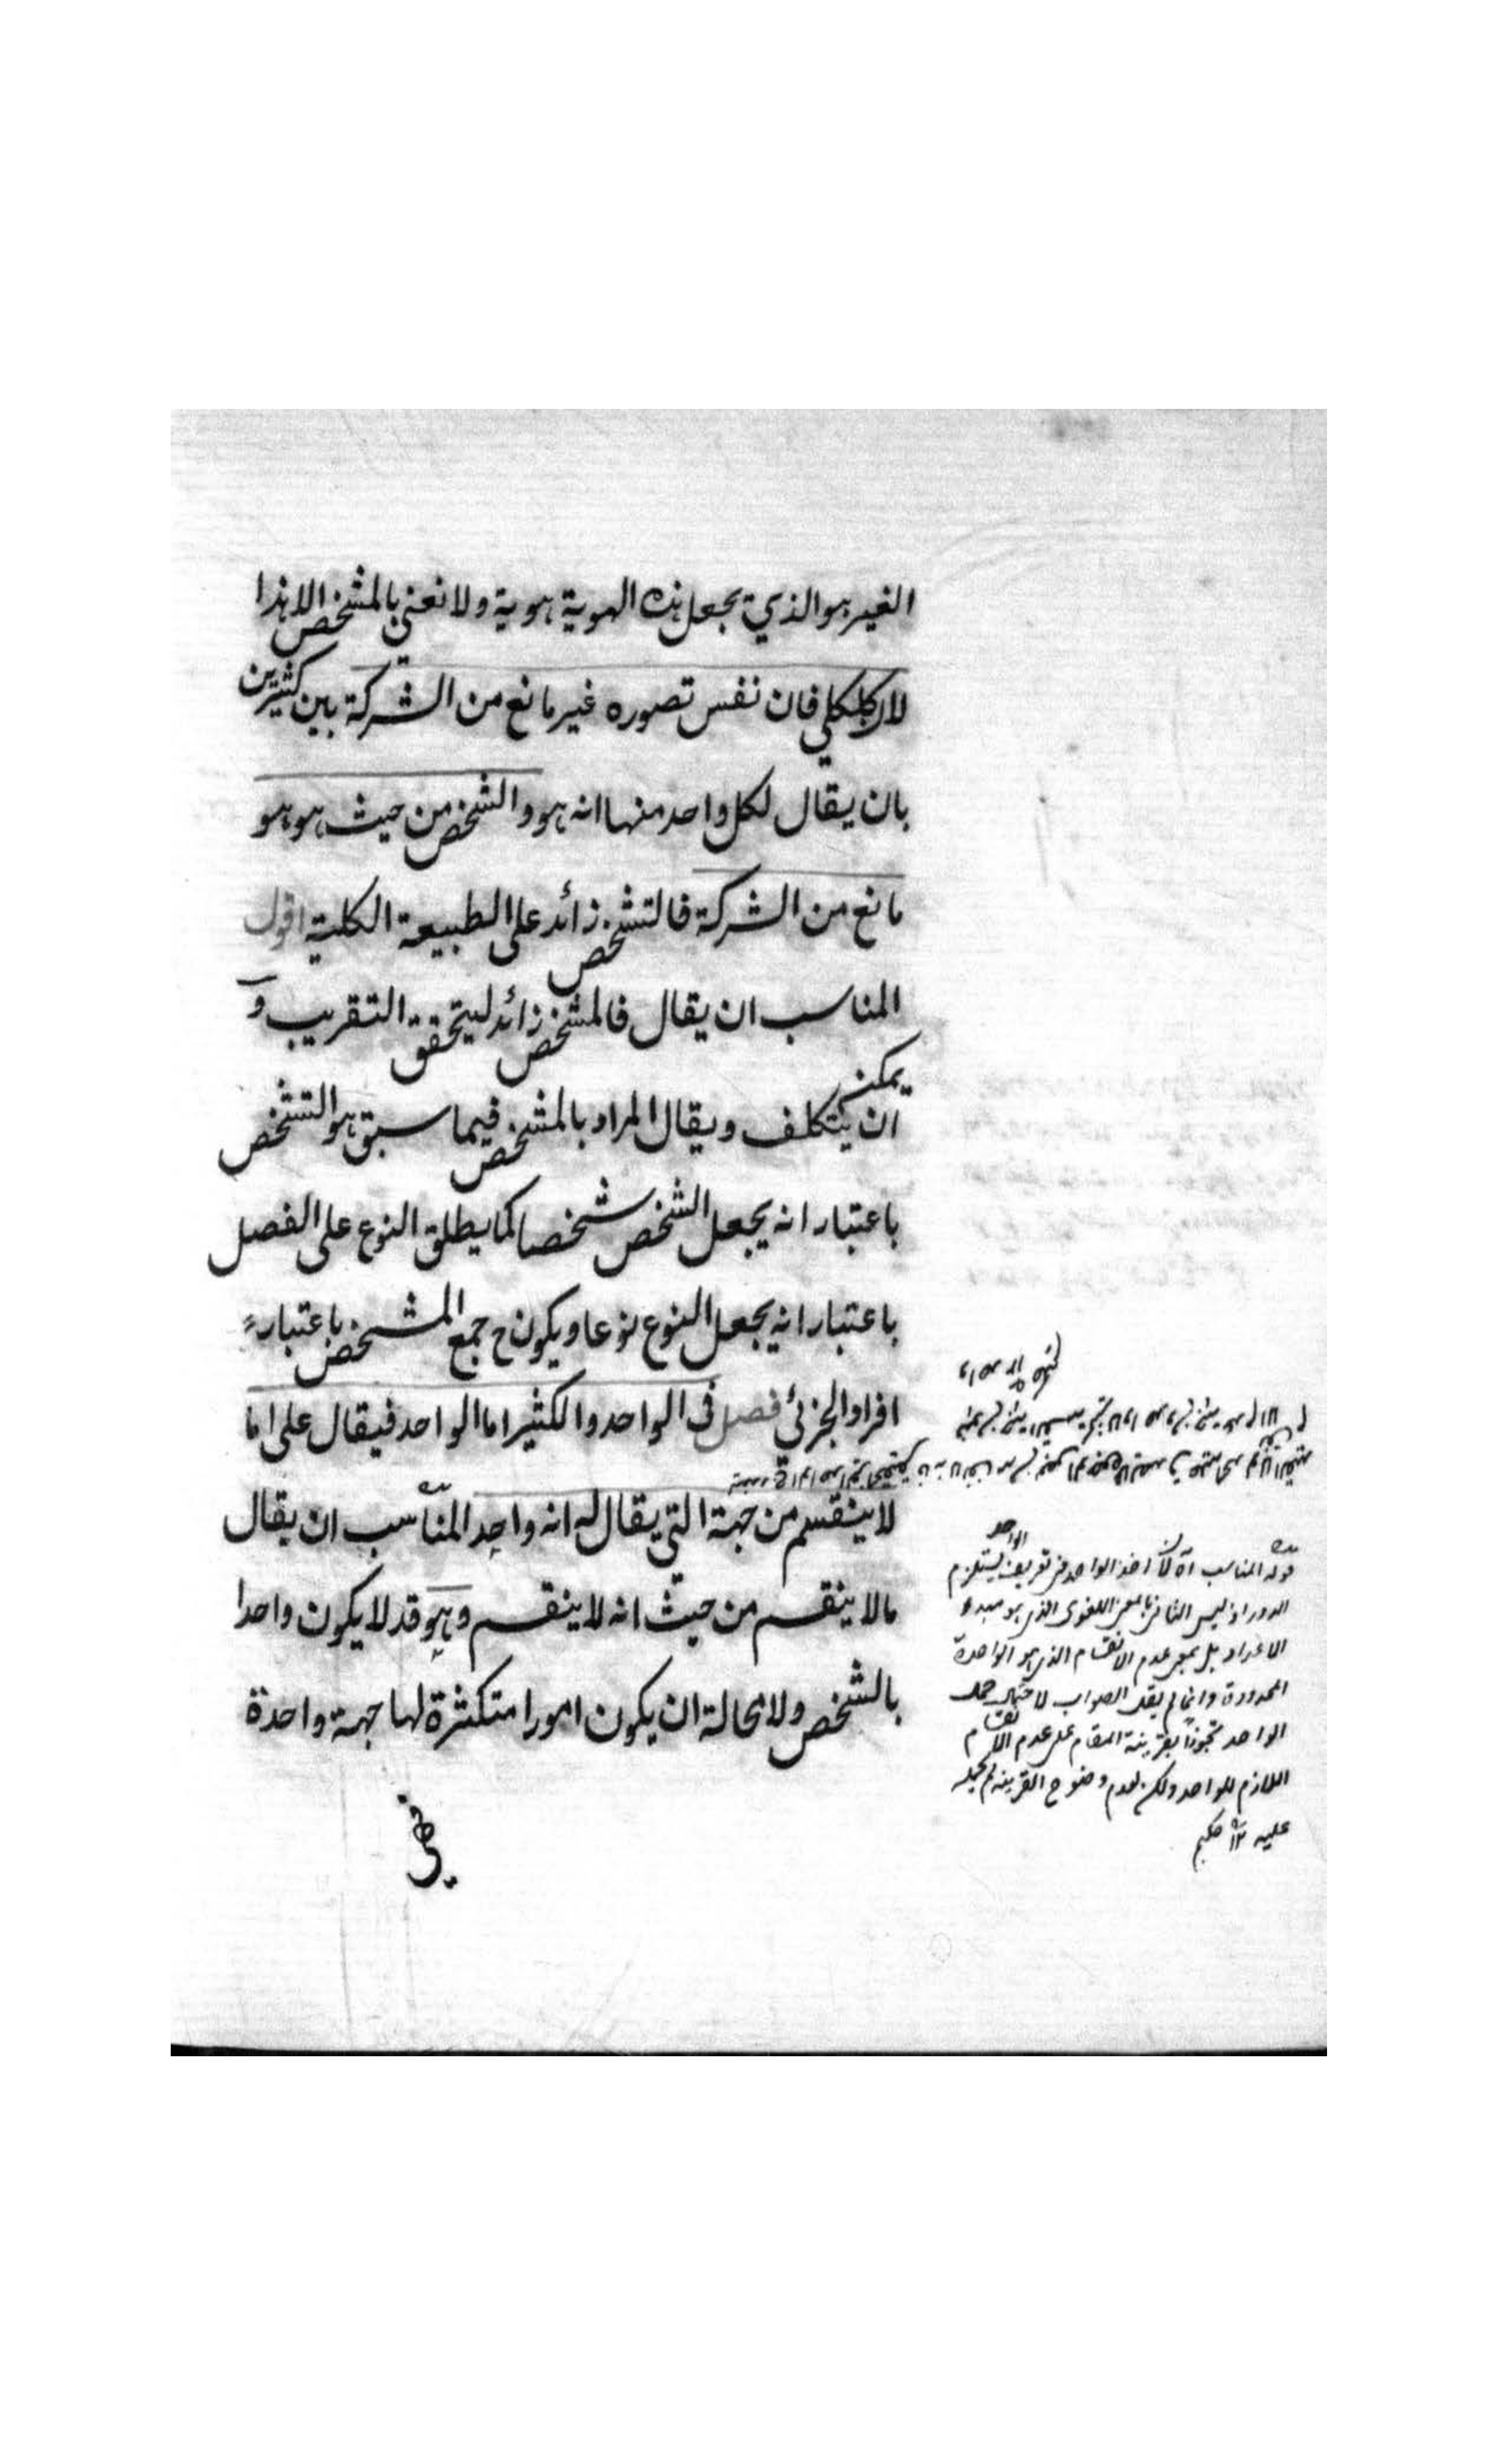 الغير هو الذي يجعل هذه الهوية هوية ولا نعني بالمشخص الا هذا
لان كل كلي فان نفس تصوره غير مانع من الشركة بين كثيرين
بان يقال لكل واحد منها انه هو والشخص من حيث هو هو
مانع من الشركة فالتشخص زائد على الطبيعة الكلية اقول
المناسب ان يقال فالمشخص زائد ليتحقق التقريب و
يمكن
ان يتكلف ويقال المراد بالمشخص فيما سبق هو التشخص
باعتبار انه يجعل الشخص شخصا كما يطلق النوع على الفصل
باعتبار انه يجعل النوع نوعا ويكون ح جمع المشخص باعتبار
افراد الجزئي فصل في الواحد والكثير اما الواحد فيقال على ما
لا ينقسم من جهة التي يقال له انه واحد المناسب ان يقال
مالا ينقسم من حيث انه لا ينقسم وهو قد لا يكون واحدا
بالشخص ولا محالة ان يكون امورا متكثرة لها جهة واحدة
قوله المناسب آه لان اخذ الواحد في تعريف الواحد يستلزم
الدور اذ ليس الثاني بالمعنى اللغوى الذي هو مبدء
الاعداد بل بمعنى عدم الانقسام الذي هو الواحدة
المحدودة وانما لم يقل الصواب لاحتمال حمل
الواحد تجوزاً بقرينة المقام على عدم الانقسام
اللازم للواحد ولكن لعدم وضوح القرينة لم يحمله
عليه ١٢ حكيم
فهي